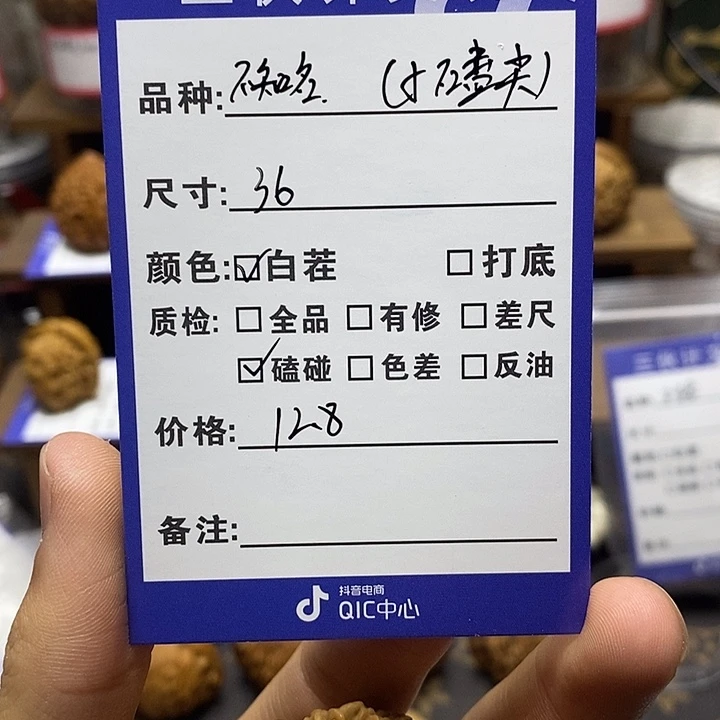 品种: 不知名 (小磕尖)
尺寸: 36
颜色: ☑白茬 □打底
质检: □全品 □有修 □差尺
☑磕碰 □色差 □反油
价格: 128
备注:
抖音电商
QIC中心